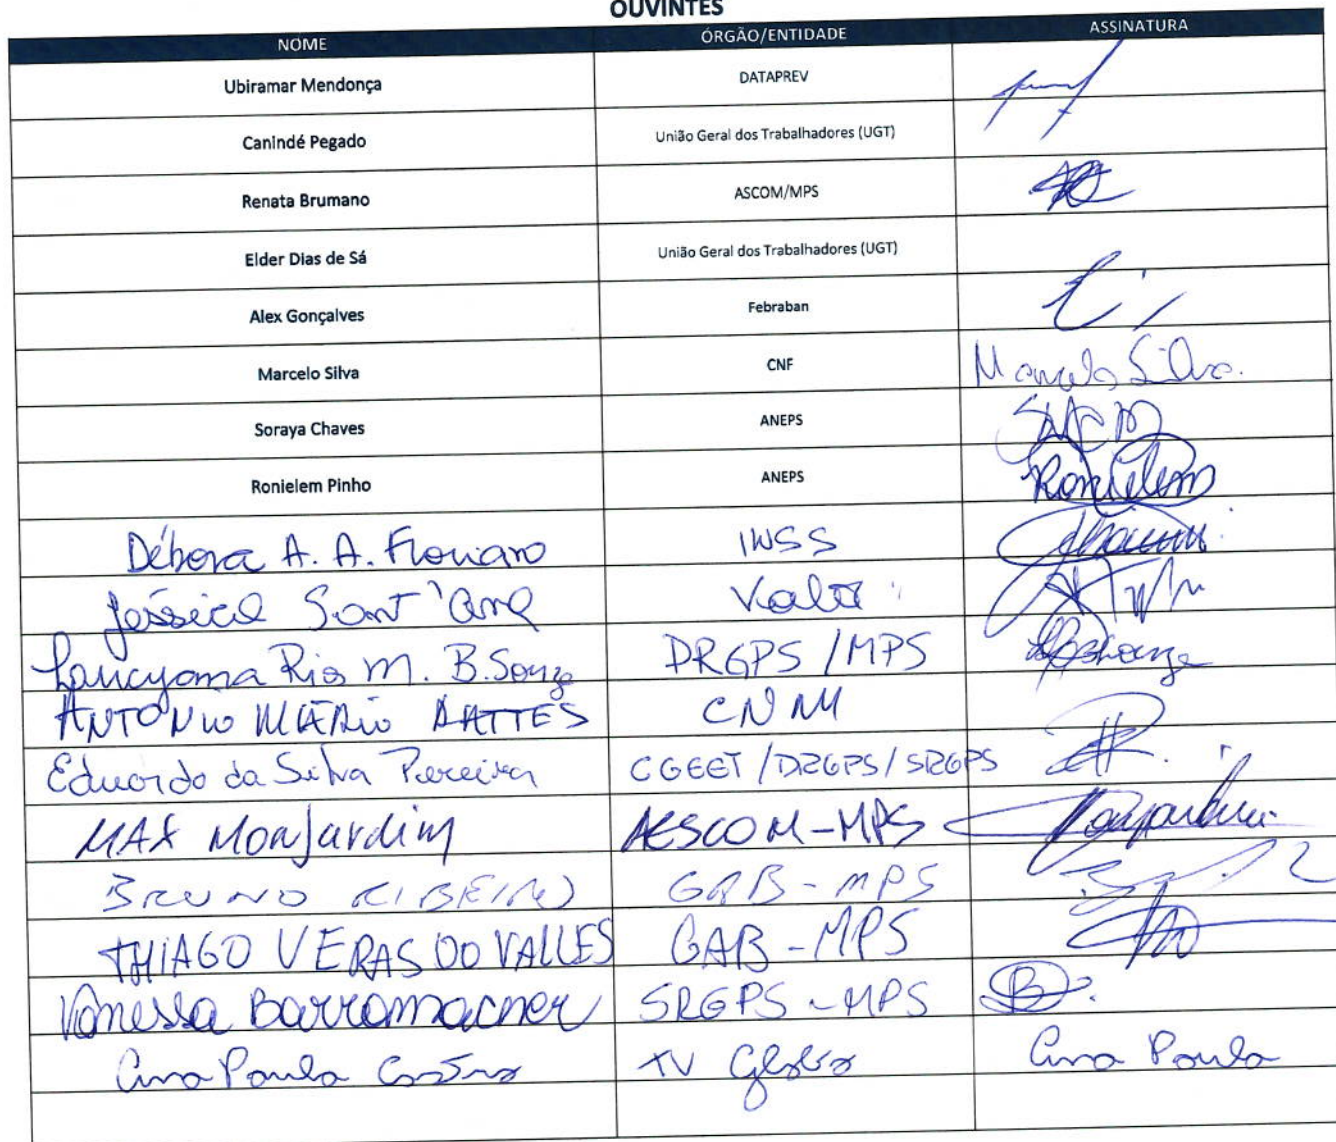 OUVINTES
NOME ÓRGÃO/ENTIDADE ASSINATURA
Ubiramar Mendonça DATAPREV
Canindé Pegado União Geral dos Trabalhadores (UGT)
Renata Brumano ASCOM/MPS
Elder Dias de Sá União Geral dos Trabalhadores (UGT)
Alex Gonçalves Febraban
Marcelo Silva CNF Marcelo Silva.
Soraya Chaves ANEPS
Ronielem Pinho ANEPS Ronielem
Débora A. A. Floriano INSS
Jéssica Sant'Ana Valor
Rios M. B. Souza DRGPS/MPS
ANTONIO MÁRIO CNM
Eduardo da Silva Pereira CGEET/DRGPS/SRGPS
MAX Monjardim AESCOM-MPS
BRUNO RIBEIRO GAB-MPS
THIAGO VERAS DO VALLES GAB-MPS
Vanessa SRGPS-MPS
Ana Paula Castro TV Globo Ana Paula